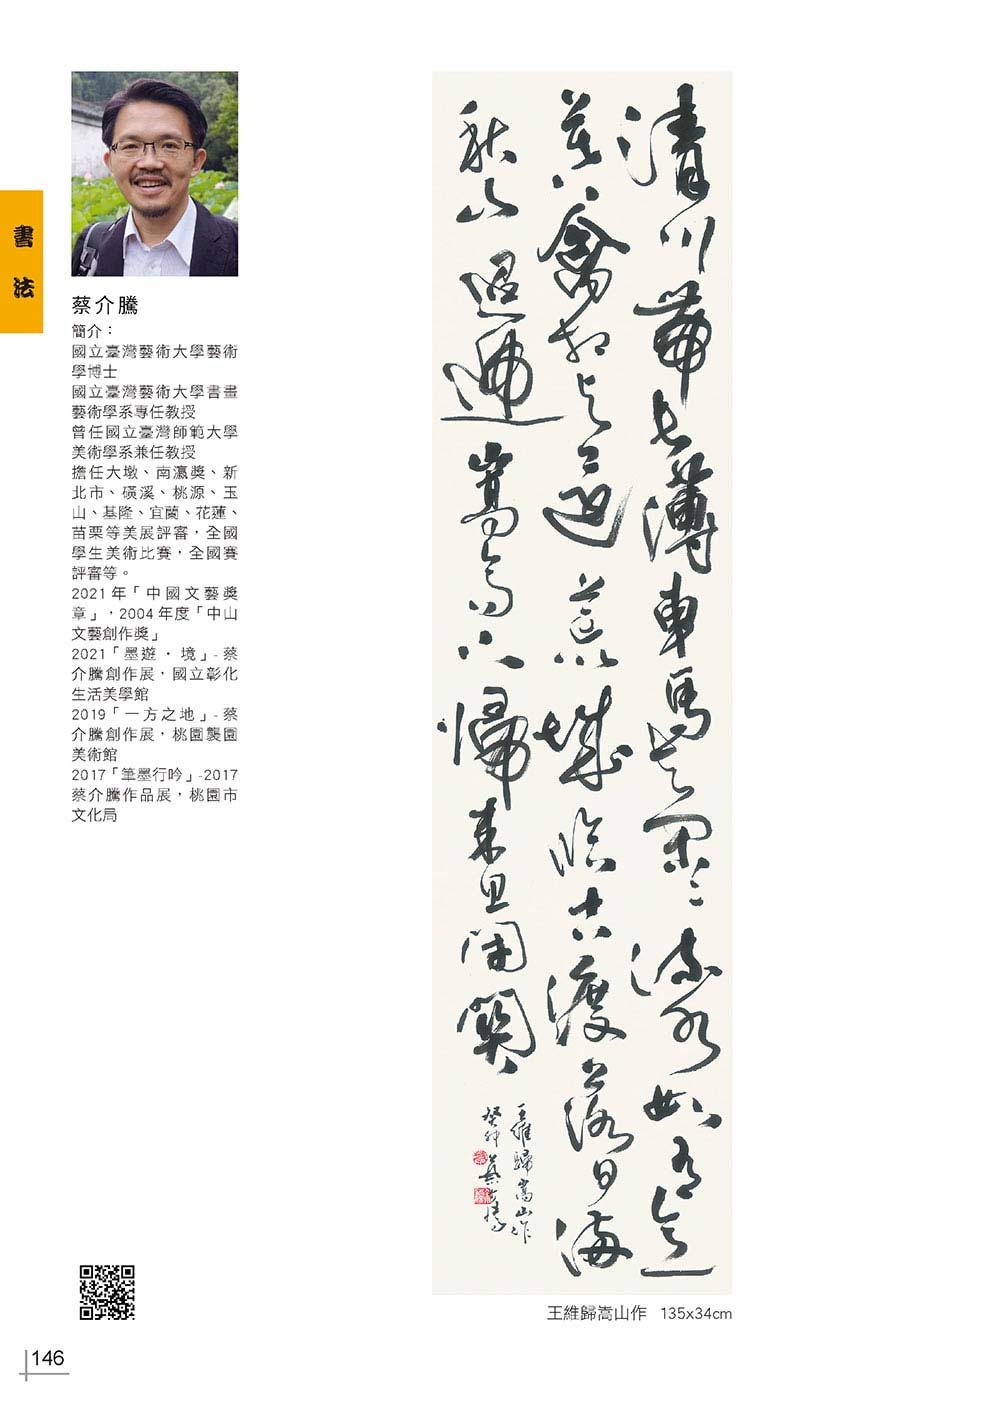 書法
蔡介騰
簡介：
國立臺灣藝術大學藝術
學博士
國立臺灣藝術大學書畫
藝術學系專任教授
曾任國立臺灣師範大學
美術學系兼任教授
擔任大墩、南瀛獎、新
北市、磺溪、桃源、玉
山、基隆、宜蘭、花蓮、
苗栗等美展評審，全國
學生美術比賽，全國賽
評審等。
2021年「中國文藝獎
章」，2004年度「中山
文藝創作獎」
2021「墨遊・境」-蔡
介騰創作展，國立彰化
生活美學館
2019「一方之地」-蔡
介騰創作展，桃園襲園
美術館
2017「筆墨行吟」-2017
蔡介騰作品展，桃園市
文化局
清川帶長薄車馬去閑〻流水如有意
暮禽相與還荒城臨古渡落日滿
秋山迢遞嵩高下歸來且閉關
王維歸嵩山作
癸卯蔡介騰
王維歸嵩山作 135x34cm
146